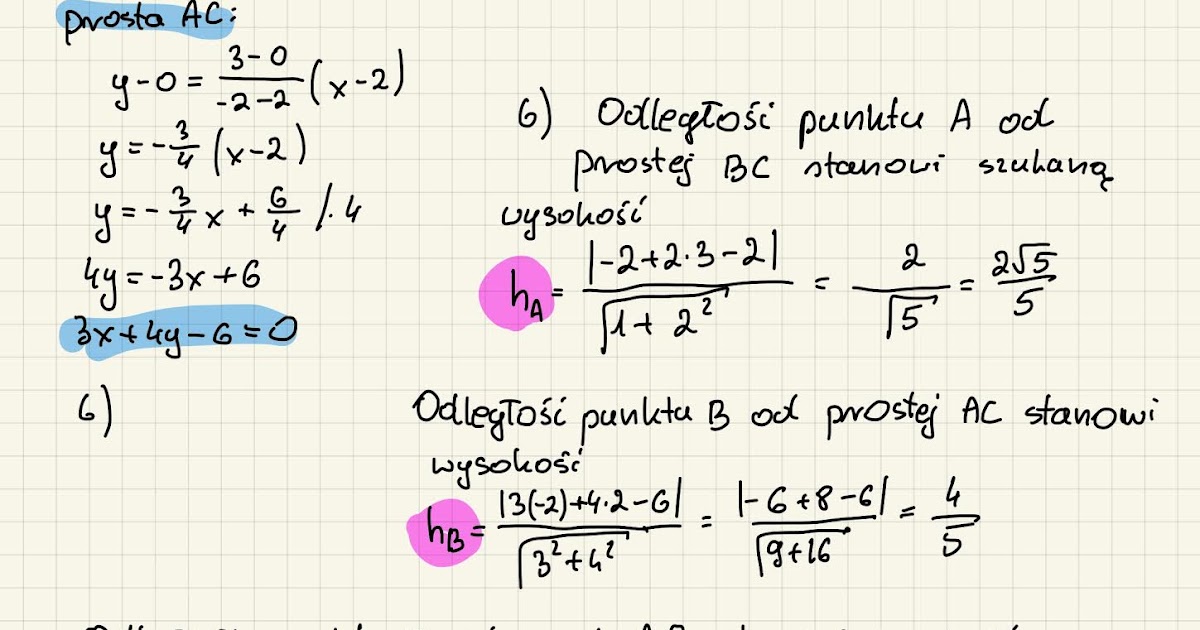 prosta AC:
y-0 = \frac{3-0}{-2-2} (x-2)
y = -\frac{3}{4} (x-2)
y = -\frac{3}{4}x + \frac{6}{4} /·4
4y = -3x+6
3x+4y-6=0
6)
6) Odległości punktu A od
prostej BC stanowi szukaną
wysokość
h_A = \frac{|-2+2·3-2|}{\sqrt{1+2^2}} = \frac{2}{\sqrt{5}} = \frac{2\sqrt{5}}{5}
Odległość punktu B od prostej AC stanowi
wysokość
h_B = \frac{|3(-2)+4·2-6|}{\sqrt{3^2+4^2}} = \frac{|-6+8-6|}{\sqrt{9+16}} = \frac{4}{5}